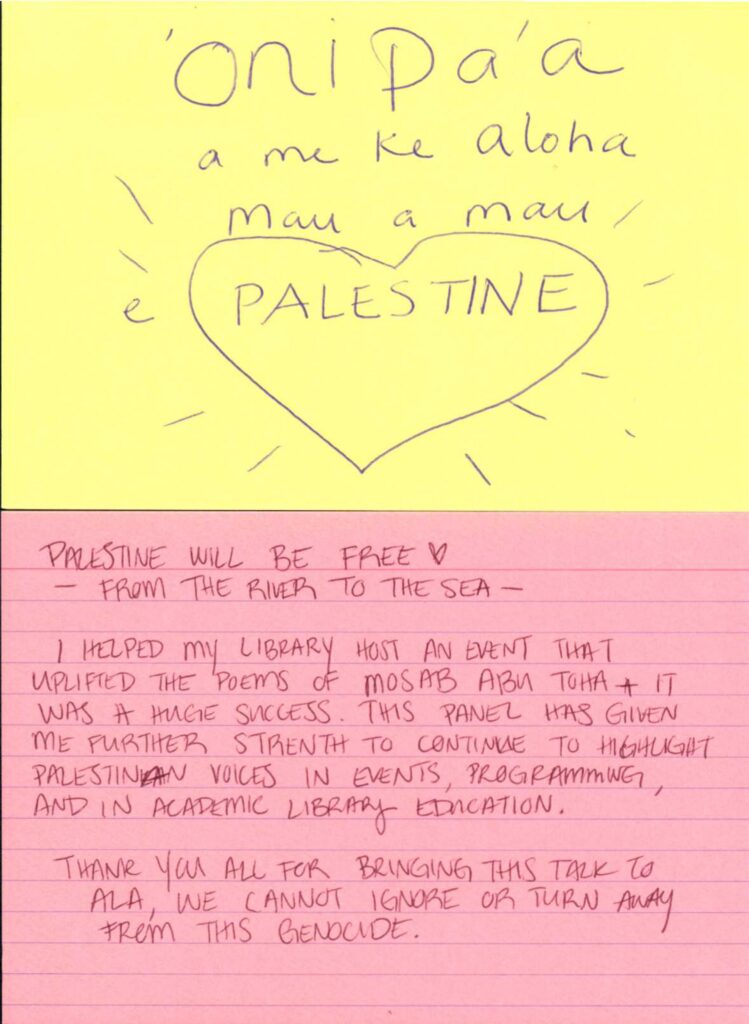 'Onipa'a
a me ke aloha
mau a mau
e PALESTINE
PALESTINE WILL BE FREE ♥
— FROM THE RIVER TO THE SEA —
I HELPED MY LIBRARY HOST AN EVENT THAT
UPLIFTED THE POEMS OF MOSAB ABU TOHA + IT
WAS A HUGE SUCCESS. THIS PANEL HAS GIVEN
ME FURTHER STRENTH TO CONTINUE TO HIGHLIGHT
PALESTINIAN VOICES IN EVENTS, PROGRAMMING,
AND IN ACADEMIC LIBRARY EDUCATION.
THANK YOU ALL FOR BRINGING THIS TALK TO
ALA, WE CANNOT IGNORE OR TURN AWAY
FROM THIS GENOCIDE.